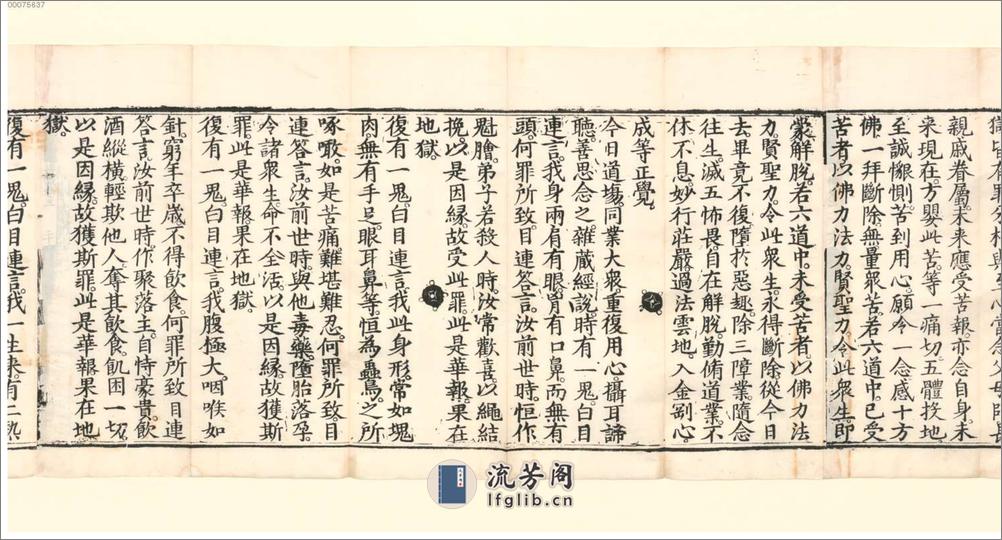 00075637
親戚眷屬未來應受苦報亦念自身未
來現在方嬰此苦等一痛切五體投地
至誠懇惻苦到用心願今一念感十方
佛一拜斷除無量眾苦若六道中已受
苦者以佛力法力賢聖力令此眾生即
蒙解脫若六道中未受苦者以佛力法
力賢聖力令此眾生永得斷除從今日
去畢竟不復墮於惡趣除三障業隨念
往生滅五怖畏自在解脫勤脩道業不
休不息妙行莊嚴過法雲地入金剛心
成等正覺
今日道場同業大眾重復用心攝耳諦
聽善思念之雜藏經說時有一鬼白目
連言我身兩肩有眼胷有口鼻而無有
頭何罪所致目連答言汝前世時恒作
魁膾弟子若殺人時汝常歡喜以繩結
挽以是因緣故受此罪此是華報果在
地獄
復有一鬼白目連言我此身形常如塊
肉無有手足眼耳鼻等恒為蟲鳥之所
啄噉如是苦痛難堪難忍何罪所致目
連答言汝前世時與他毒藥墮胎落孕
令諸眾生命不全活以是因緣故獲斯
罪此是華報果在地獄
復有一鬼白目連言我腹極大咽喉如
針窮年卒歲不得飲食何罪所致目連
答言汝前世時作聚落主自恃豪貴飲
酒縱橫輕欺他人奪其飲食飢困一切
以是因緣故獲斯罪此是華報果在地
獄
復有一鬼白目連言我一生來有二熱
流芳阁
lfglib.cn